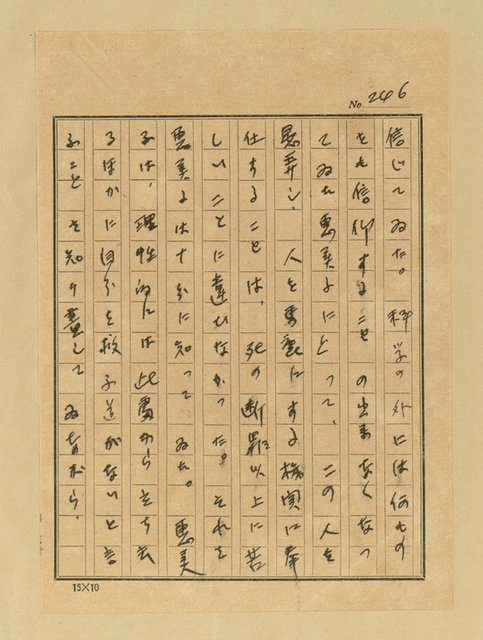 No. 246
信じてゐた。科学の外には何もの
をも信仰することの出来なくなつ
てゐた恵美子にとつて、この人を
愚弄し、人を馬鹿にする機関に奉
仕することは、死の断罪以上に苦
しいことに違ひなかつた。それを
恵美子は十分に知つてゐた。恵美
子は、理性的には此処から立ち去
るほかに自分を救ふ道がないと言
ふことを知り盡してゐながら、
15×10